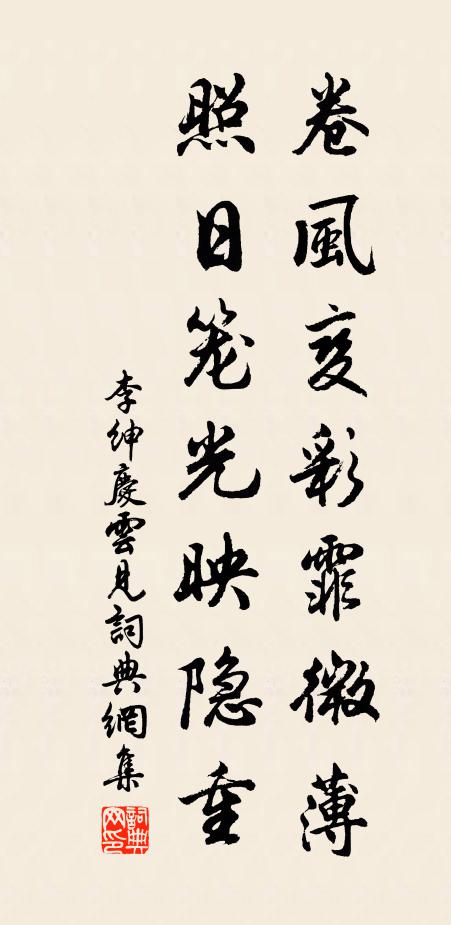 卷風变彩霏微薄
照日笼光映隐重
李紳慶雲見詞典網集
詞典網印